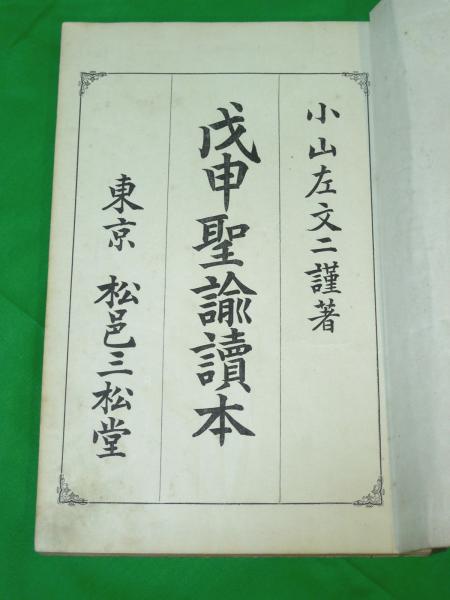 小山左文二謹著
戊申聖諭讀本
東京 松邑三松堂